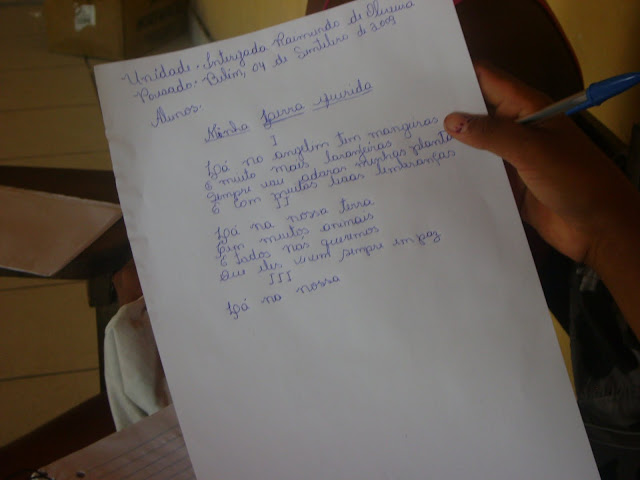 Unidade:. Intergada Raimundo de Oliveira
Povoado:. Belim, 04 de Semtebro de 2009
Alunos:
Minha terra querida
I
Lá no angelim tem mangeiras
E muito mais laranjeiras
Sempre vou adorar minhas planta
E com muitas boas lembranças
II
Lá na nossa terra
Tem muitos animais
E todos nós queremos
Que eles vivem sempre em paz
III
Lá na nossa